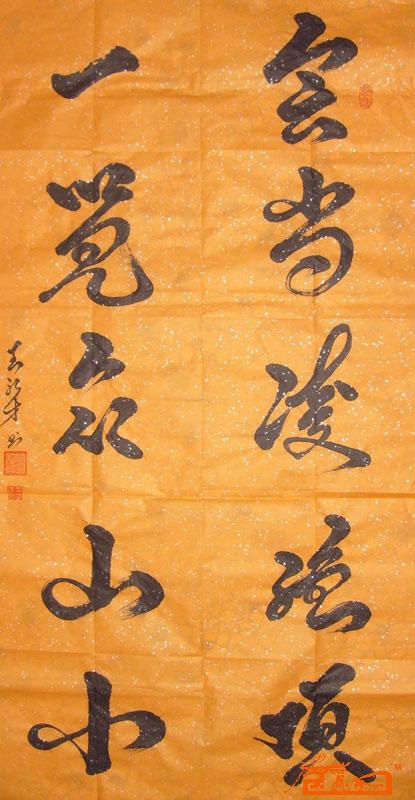 会当凌绝顶
一览众山小